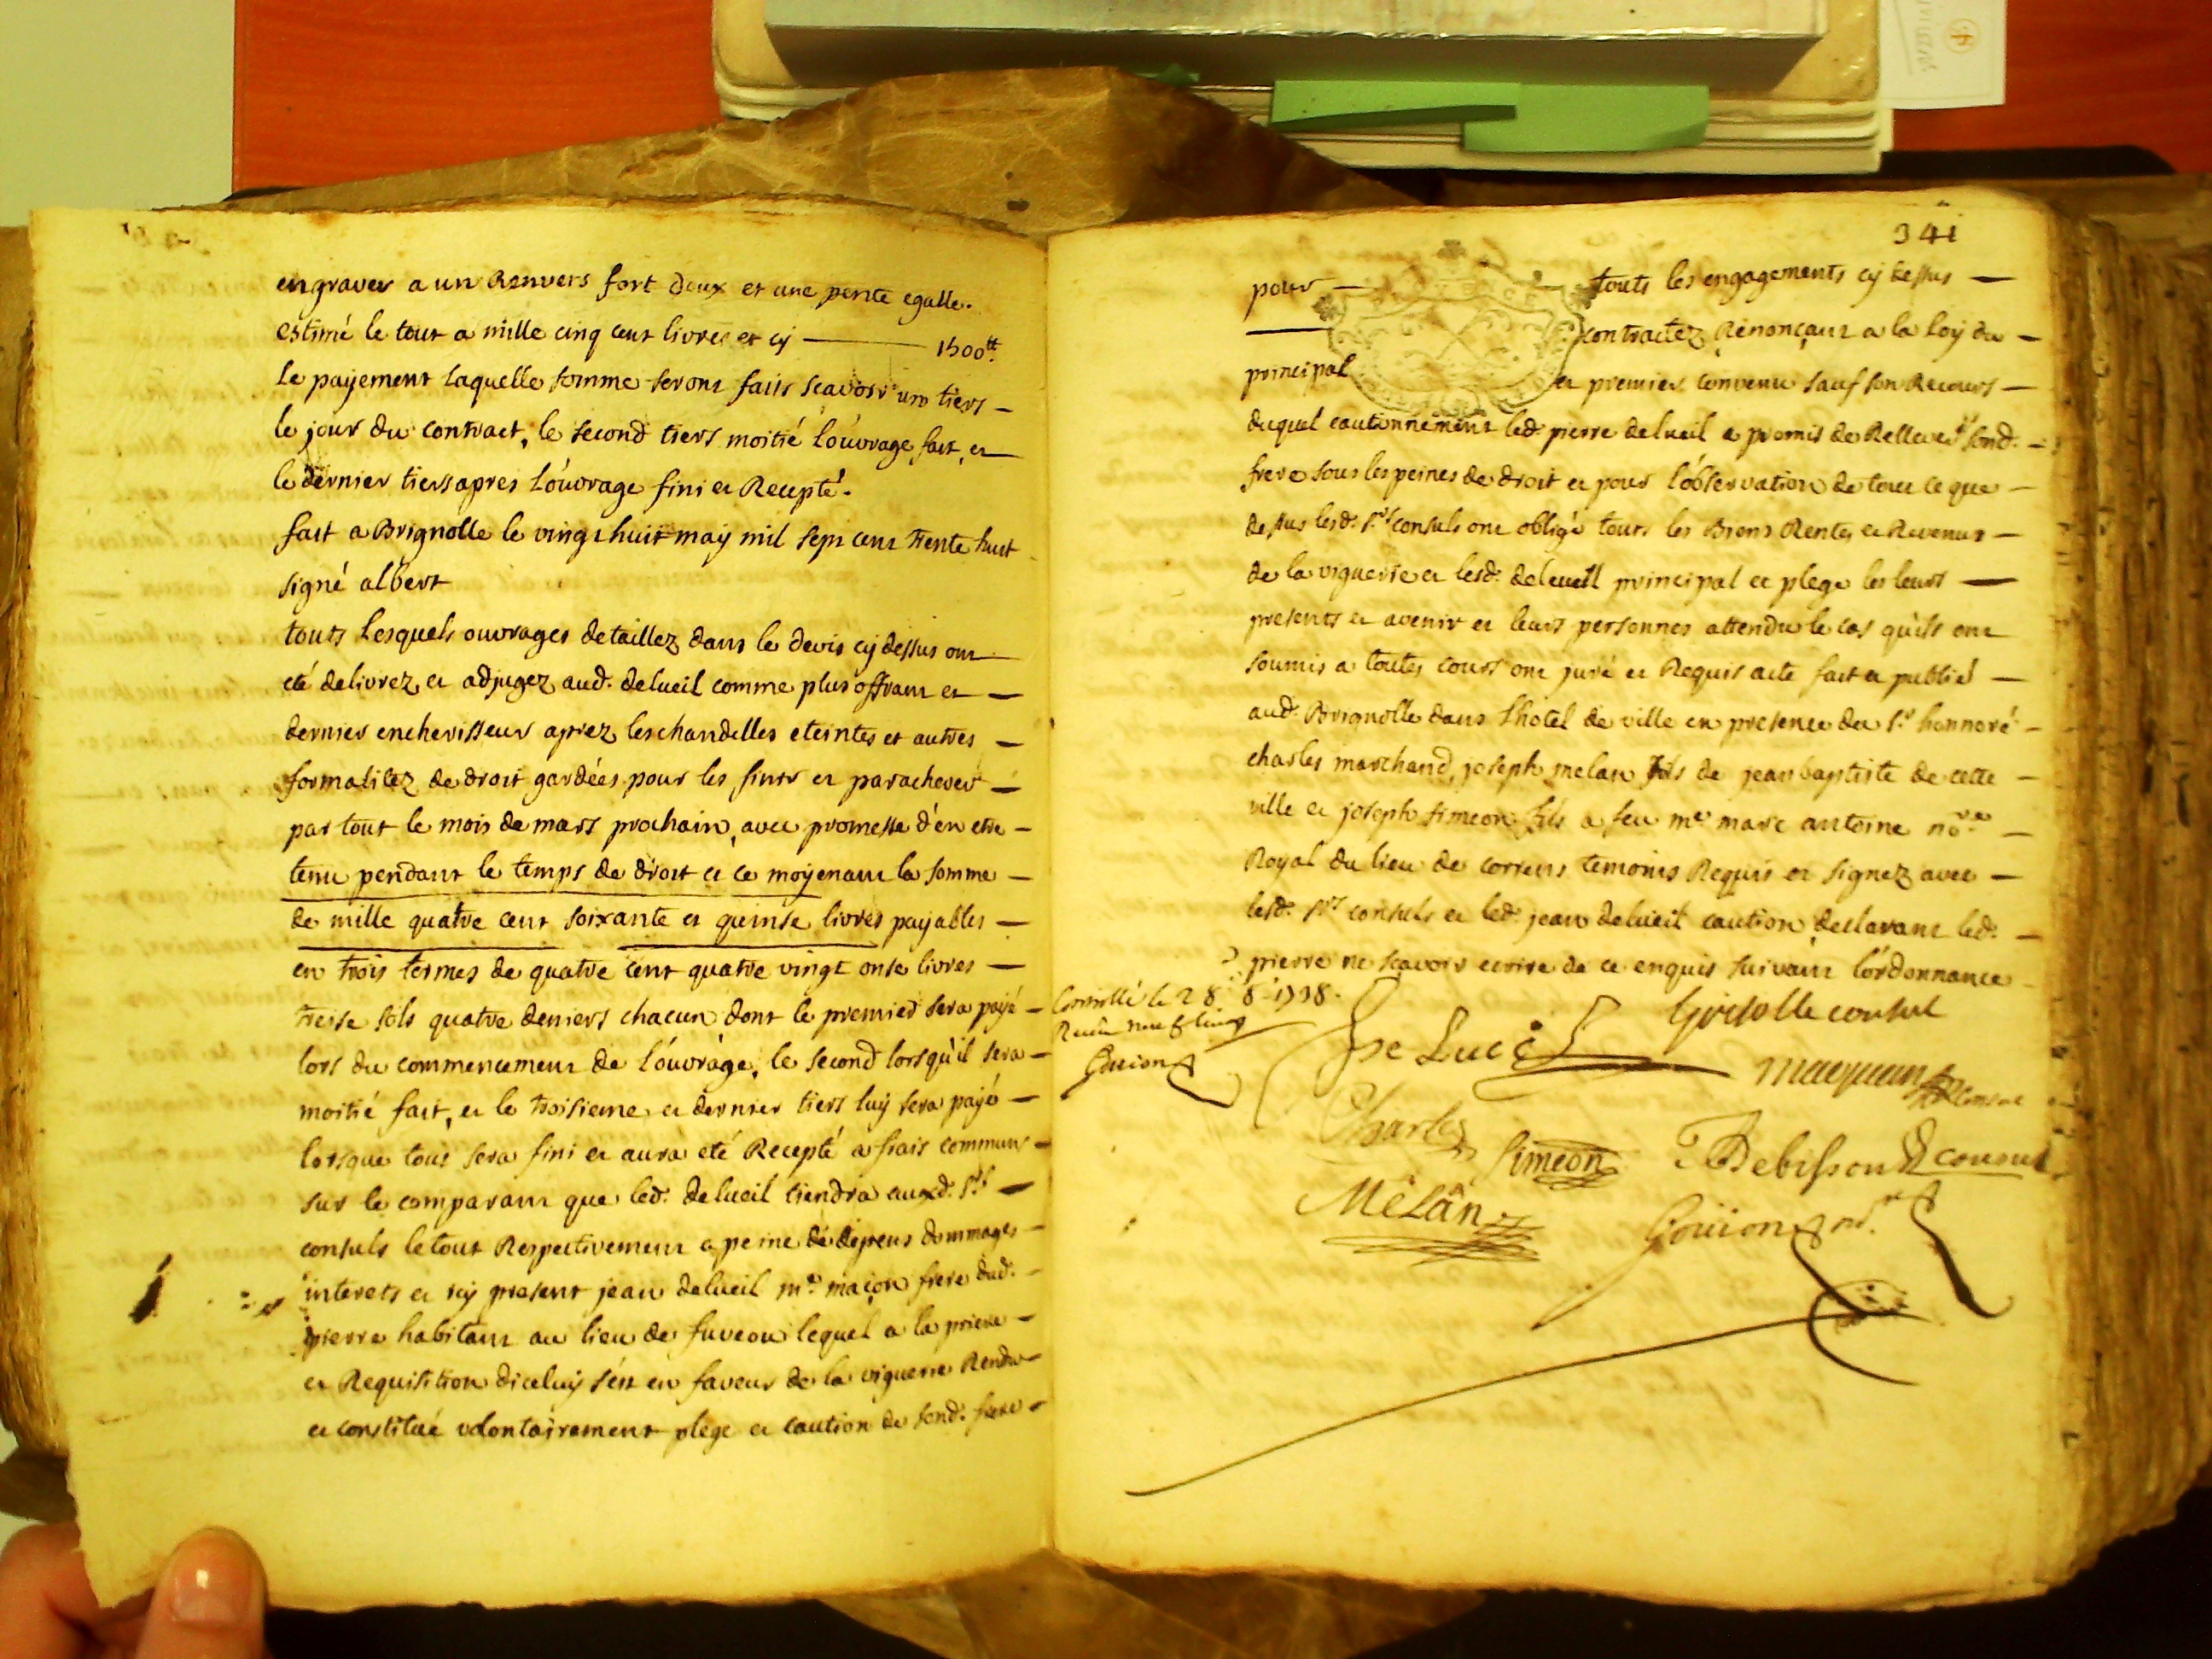 engraver a un Renvers fort doux et une pente egalle.
estimé le tout a mille cinq cent livres et cy — 1500tt.
Le payement laquelle somme seront faits scavoir un tiers —
le jour du contract, le second tiers moitié l'ouvrage fait, et
le dernier tiers apres l'ouvrage fini et Recepté.
fait a Brignolle le vingt huit may mil sept cent trente huit
signé albert
touts Lesquels ouvrages detaillez dans le devis cy dessus ont
eté delivrez et adjugez aud. delueil comme plus offrant et —
dernier encherisseur aprez les chandelles eteintes et autres —
formalitez de droit gardées pour les finir et parachever —
par tout le mois de mars prochain, avec promesse d'en etre —
tenu pendant le temps de droit et ce moyenant la somme —
de mille quatre cent soixante et quinse livres payables —
en trois termes de quatre cent quatre vingt onse livres —
treise sols quatre deniers chacun dont le premier sera payé —
lors du commencement de l'ouvrage, le second lorsqu'il sera —
moitié fait, et le troisieme et dernier tiers luy sera payé —
lorsque tout sera fini et aura eté Recepté a frais communs —
sur le comparant que led. delueil tiendra auxd. Srs —
consuls le tout Respectivement a peine de depens dommages —
interets et icy present jean delueil me. maçon frere dud. —
pierre habitant au lieu de fuveou lequel a la priere —
et Requisition diceluy s'est en faveur de la viguerie Rendu —
et constitué volontairement plege et caution de sond. frere —
341
pour — touts les engagements cy dessus —
— contractez Renonçant a la loy du —
principal et premier convenu sauf son Recours —
duquel cautionnement led. pierre delueil a promis de Rellever sond. —
frere sous les peines de droit et pour l'observation de tout ce que —
dessus lesd. Srs consuls ont obligé touts les Biens Rentes et Revenus —
de la viguerie et lesd. delueil principal et plege les leurs —
presents et avenir et leurs personnes attendu le cas qu'ils ont
soumis a toutes cours ont juré et Requis acte fait et publié —
aud. Brignolle dans l'hotel de ville en presence du Sr. honnoré —
charles marchand, joseph melan fils de jean baptiste de cette —
ville et joseph simeon fils a feu me marc antoine nore —
Royal du lieu de correns temoins Requis et signez avec —
lesd. Srs consuls et led. jean delueil caution, declarant led. —
pierre ne scavoir ecrire de ce enquis suivant l'ordonnance
Controllé le 28 8e 1738.
Gouion
Grisolle consul
De Lueil
maquan consul
Charles
Simeon
Debisson consul
Mêlân
Goüion nore